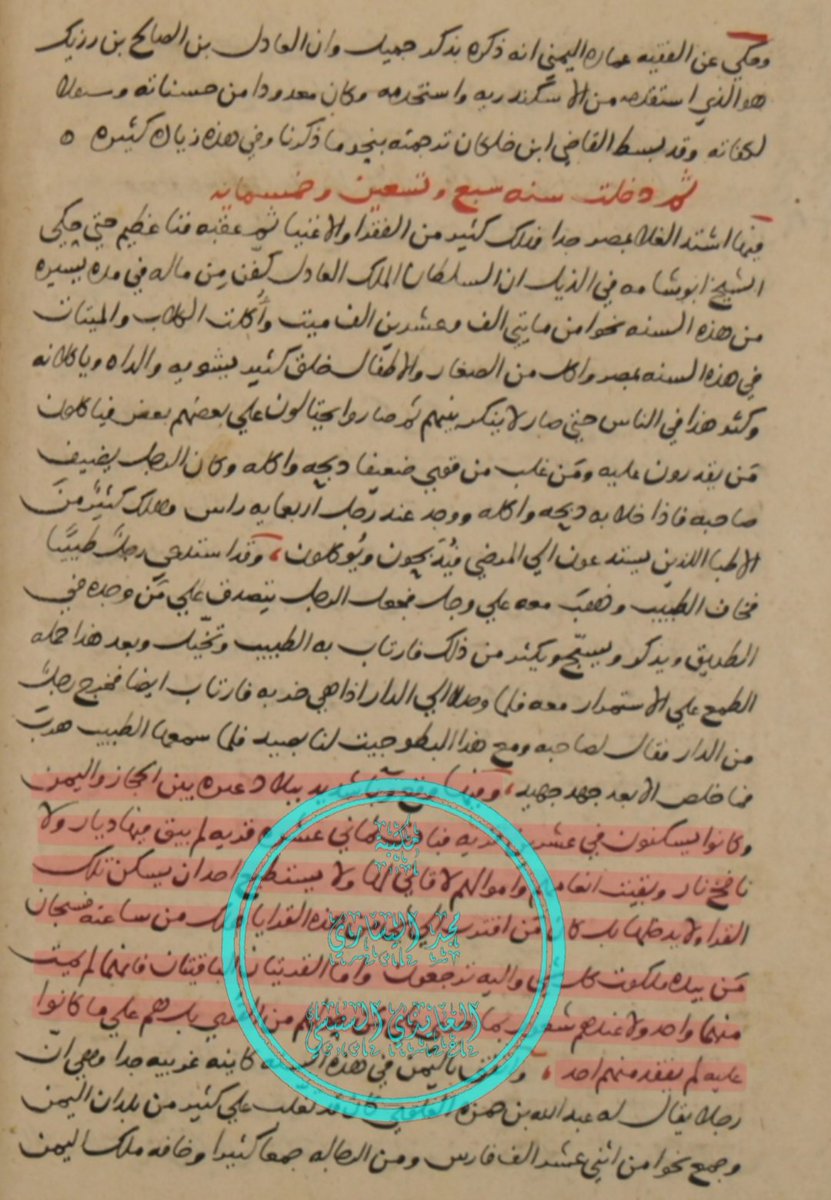 وحكي عن الفقيه عماره اليمني انه ذكره بذكر جميل وان العادل بن الصالح بن رزيك
هو الذي استقدمه من الاسكندريه واستخدمه وكان معدودا من حسناته
وقد بسط القاضي ابن خلكان ترجمته بنحو ما ذكرنا وفي هذه زياده كثيره ه
ثم دخلت سنه سبع وتسعين وخمسمايه
فيها اشتد الغلا بمصر جدا فهلك كثير من الفقرا والاغنيا ثم عقبه فنا عظيم حتي حكي
الشيخ ابو شامه في الذيل ان السلطان الملك العادل كفّن من ماله في مده يسيره
من هذه السنه نحوا من مايتي الف وعشرين الف ميت وأكلت الكلاب والميتات
في هذه السنه بمصر واكل من الصغار والاطفال خلق كثير يشويه والداه وياكلانه
وكثر هذا في الناس حتي صار لا ينكر بينهم ثم صاروا يحتالون علي بعضهم بعض فياكلون
من يقدرون عليه ومن غلب من قوي ضعيفا ذبحه واكله وكان الرجل يضيف
صاحبه فاذا خلا به ذبحه واكله ووجد عند رجل اربعمايه راس وهلك كثير من
الاطبا الذين يستدعون الي المرضي فيُذبحون ويُوكلون، وقد استدعي رجلٌ طبيبًا
فخاف الطبيب وذهب معه علي وجل فجعل الرجل يتصدق علي من وجده في
الطريق ويذكر ويسبّح ويكثر من ذلك فارتاب به الطبيب وتخيّل وبعد هذا حمله
الطمع علي الاستمرار معه فلما وصلا الي الدار اذا هي خربه فارتاب ايضا فخرج رجل
من الدار فقال لصاحبه ومع هذا البطو جيت لنا بصيد فلما سمعها الطبيب هرب
فما خلص الا بعد جهد جهيد، وفيها وقع وبا شديد ببلاد عنزه بين الحجاز واليمن
وكانوا يسكنون في عشرين قريه فبادت ثماني عشره قريه لم يبق فيها ديار ولا
نافخ نار وبقيت انعامهم واموالهم لا قاني لها ولا يستطيع احد ان يسكن تلك
القرا ولا يدخلها بل كان من اقترب الي هذه القرايا هلك من ساعته فسبحان
من بيده ملكوت كل شي واليه ترجعون واما القريتان الباقيتان فانهما لم يمت
منهما واحد ولا عندهم شعور بما من القري بل هم علي ما كانوا
عليه لم يفقد منهم احد، واتفق باليمن في هذه السنه كاينه غريبه جدا وهي ان
رجلا يقال له عبد الله بن حمزه العلوي كان قد تغلب علي كثير من بلدان اليمن
وجمع نحوا من اثني عشر الف فارس ومن الرجاله جمعا كثيرا وخافه ملك اليمن
مكتبة
محمد